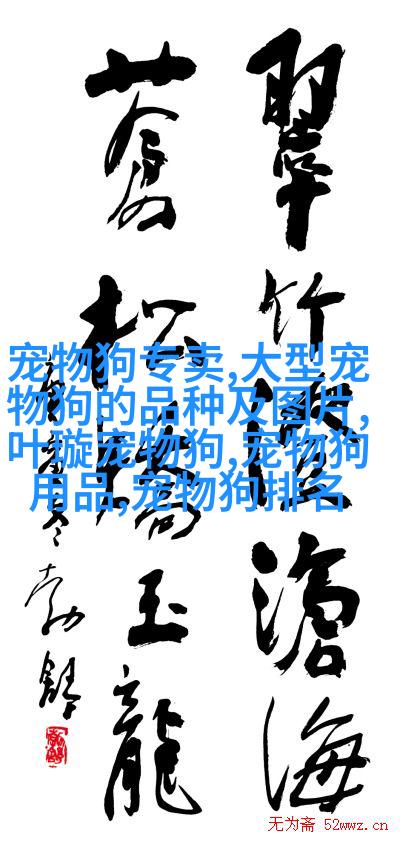 翠竹滄海
蒼松玉龍
宠物狗专卖,大型宠
物狗的品种及图片,
叶璇宠物狗,宠物狗
用品,宠物狗排名
无为斋 52wwz.cn